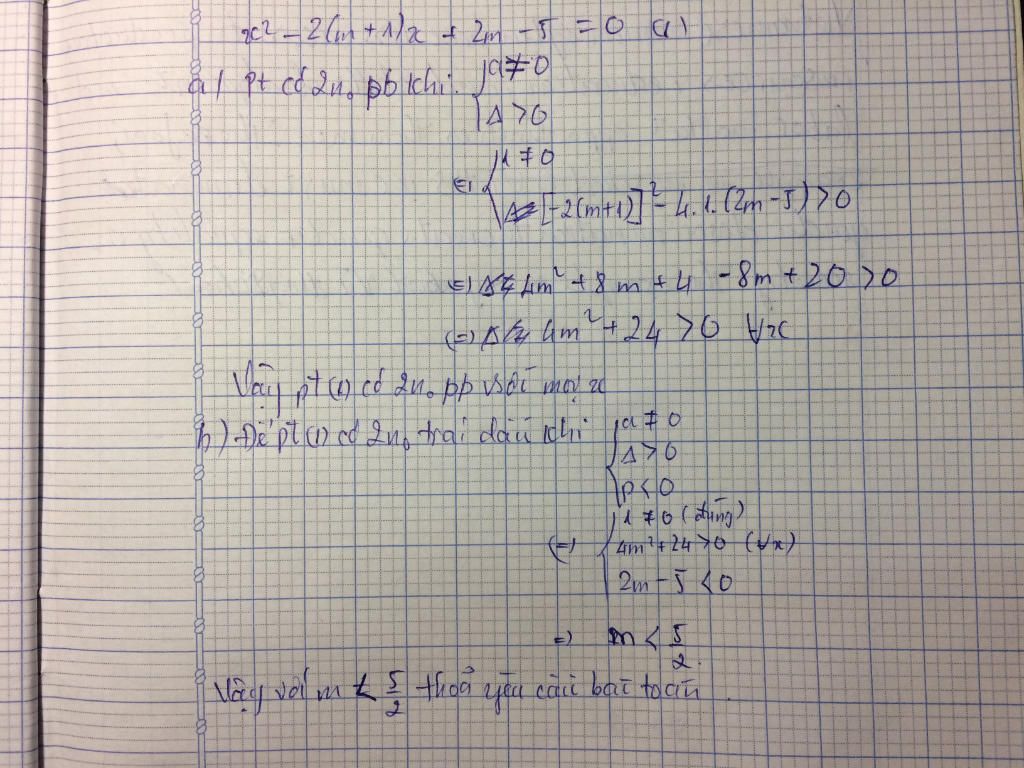 x² - 2(m+1)x + 2m - 5 = 0 (1)
a) pt có 2n₀ pb khi { a ≠ 0
Δ > 0
⇔ { 1 ≠ 0
[-2(m+1)]² - 4.1.(2m-5) > 0
⇔ 4m² + 8m + 4 - 8m + 20 > 0
(=) 4m² + 24 > 0 ∀x
Vậy pt (1) có 2n₀ pb với mọi x
b) Để pt (1) có 2n₀ trái dấu khi { a ≠ 0
Δ > 0
p < 0
(=) { 1 ≠ 0 (đúng)
4m² + 24 > 0 (∀x)
2m - 5 < 0
=) m < 5/2
Vậy với m < 5/2 thoả yêu cầu bài toán.